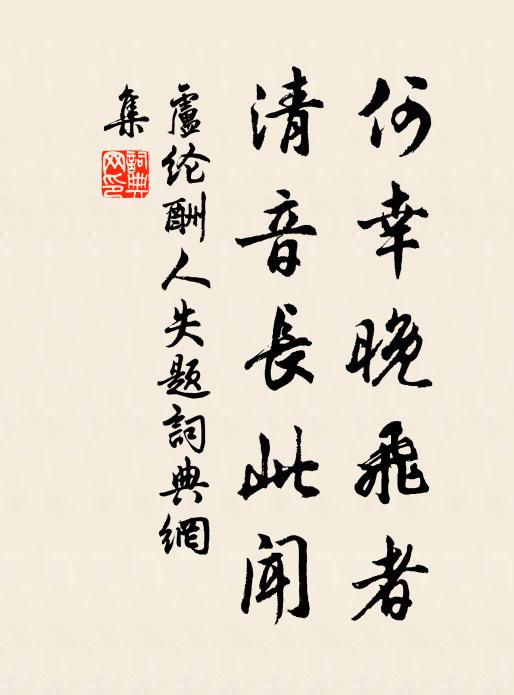 何幸晚飛者
清音長此聞
盧纶酬人失题詞典網
集
詞典网印